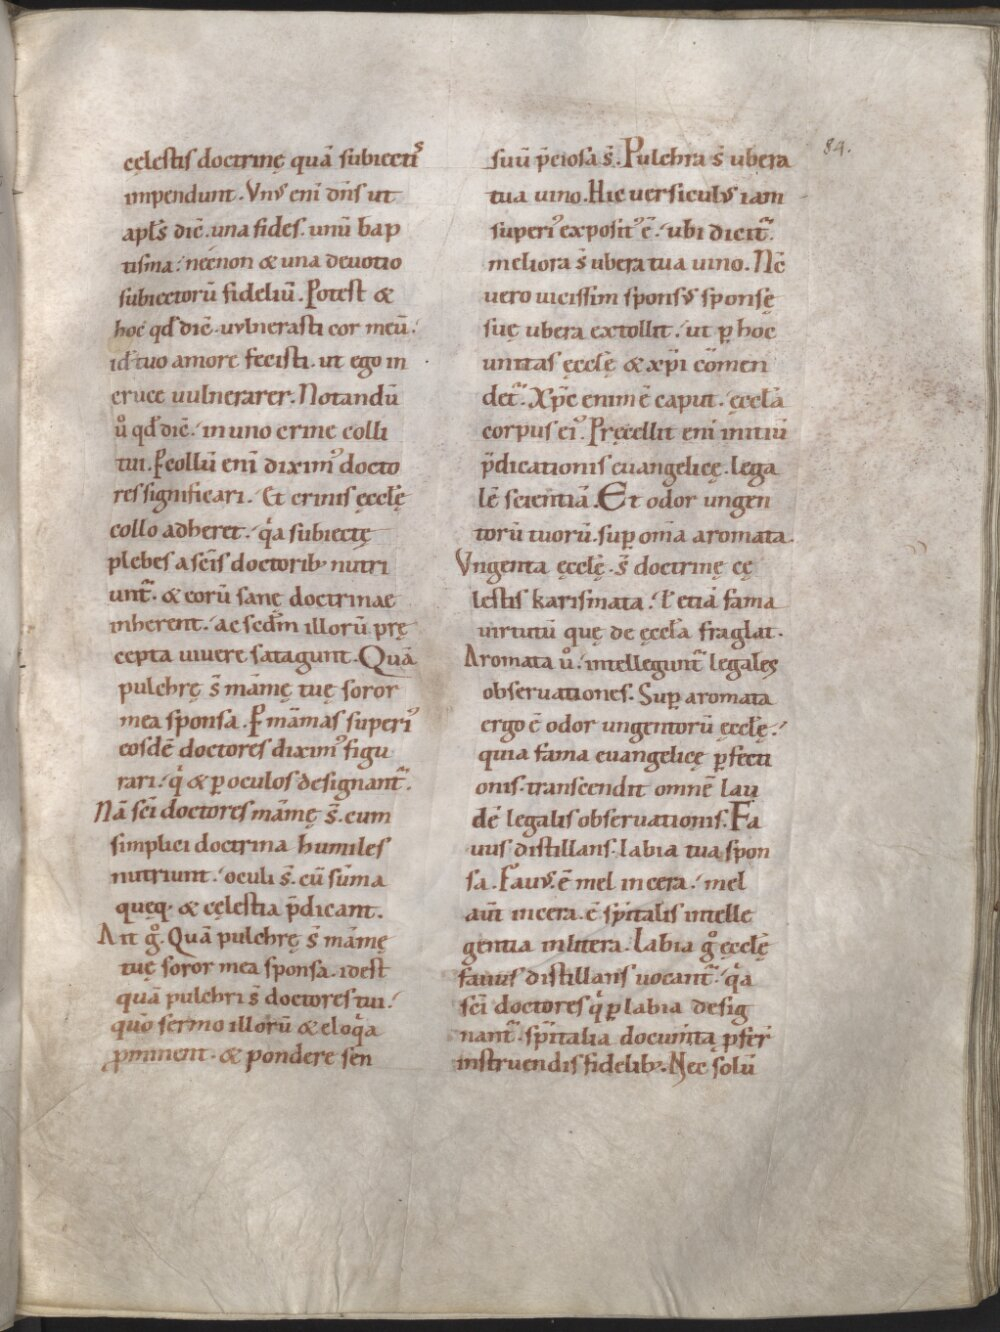 cęlestis doctrinę quā subiectis
impendunt. Vnus enī dn̄s ut
apl's dic̄. una fides. unū bap
tisma. necnon & una deuotio
subiectorū fideliū. Potest &
hoc qd' dic̄. uulnerasti cor meū.
id' tuo amore fecisti. ut ego in
cruce uulnerarer. Notandū
ů qd' dic̄. in uno crine colli
tui. P collū enī diximꝰ docto
res significari. Et crinis ęcclę
collo adheret. qͣa subiectę
plebes a sc̄is doctorib; nutri
unt̃. & eorū sanę doctrinae
inherent. ac sedm̄ illorū prę
cepta uiuere satagunt. Quā
pulchrę s̄ mām̄ę tuę soror
mea sponsa. P mām̄as superiꝰ
eosdē doctores diximꝰ figu
rari. qͥ & p oculos designant̃.
Nā sc̄i doctores mām̄ę s̄. cum
simplici doctrina humiles
nutriunt. oculi s̄. cū sūma
quęq; & cęlestia p̄dicant.
Ait gͦ. Quā pulchrę s̄ mām̄ę
tuę soror mea sponsa. idest
quā pulchri s̄ doctores tui.
quō sermo illorū & eloqͣa
prominent. & pondere sen
suū p̄ciosa s̄. Pulchra s̄ ubera
tua uino. Hic uersiculus iam
superiꝰ expositꝰ ē. ubi dicit̃.
meliora s̄ ubera tua uino. Nc̄
uero uicissim sponsus sponsę
suę ubera extollit. ut p hoc
unitas ęcclę & xp̄i cōmen
det̃. Xp̄c enim ē caput. ęccla
corpus eiꝰ. Pręcellit enī initiū
p̄dicationis euangelicę. lega
lē scientiā. Et odor ungen
torū tuorū. sup om̄a aromata.
Vngenta ęcclę. s̄ doctrinę cę
lestis karismata. ł etiā fama
uirtutū quę de ęccla fraglat.
Aromata ů. intellegunt̃ legales
obseruationes. Sup aromata
ergo ē odor ungentorū ęcclę.
quia fama euangelicę pfecti
onis. transcendit omnē lau
dē legalis obseruationis. Fa
uus distillans. labia tua spon
sa. Fauus ē mel in cera. mel
aut̄ in cera. ē sp̄italis intelle
gentia in littera. Labia gͦ ęcclę
fauus distillans uocant̃. qͣa
sc̄i doctores qͥ p labia desig
nant̃. sp̄italia documtā pfer̄
instruendis fidelib;. Nec solū
84.